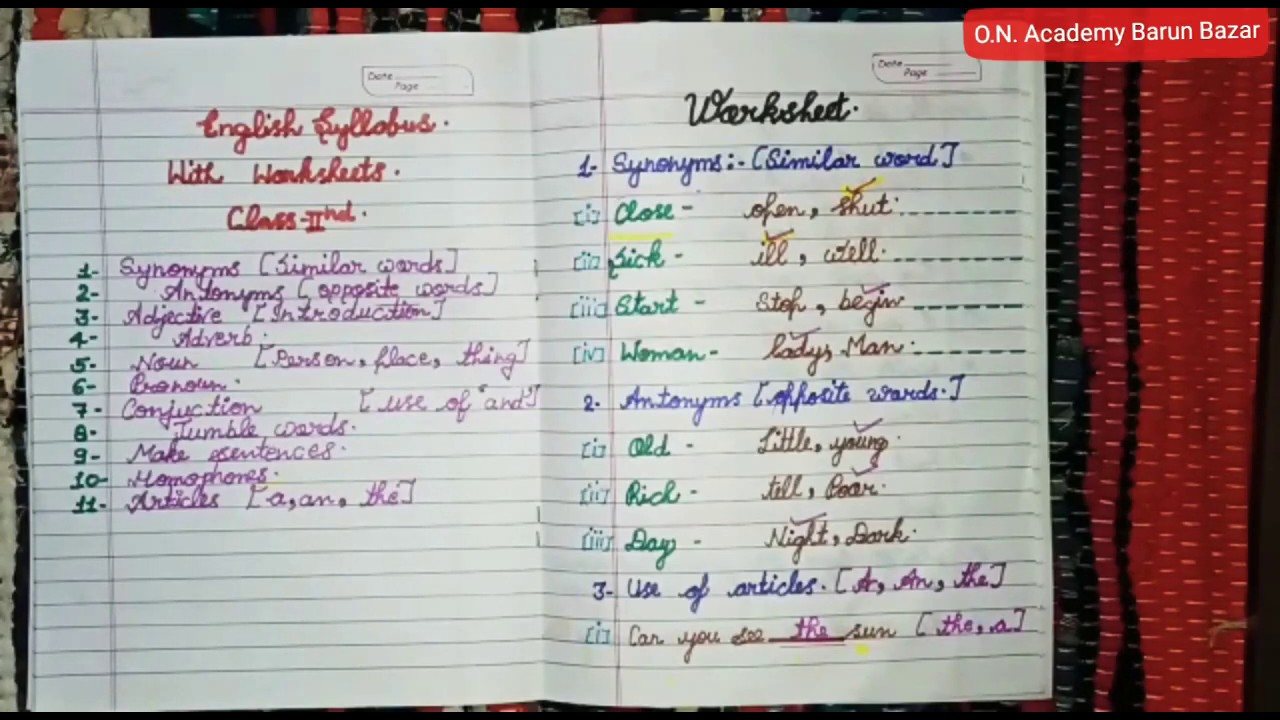 O.N. Academy Barun Bazar
Date
Page
English Syllabus.
With Worksheets.
Class-IInd.
1- Synonyms [Similar words]
2- Antonyms [opposite words]
3- Adjective [Introduction]
4- Adverb.
5- Noun [Person, place, thing]
6- Pronoun.
7- Conjuction [use of "and"]
8- Jumble words.
9- Make sentences.
10- Homophones.
11- Articles [a, an, the]
Date
Page
Worksheet.
1- Synonyms:- [Similar word]
[i] Close - open, shut.
[ii] Sick - ill, well.
[iii] Start - Stop, begin
[iv] Woman - lady, Man.
2. Antonyms [opposite words.]
[i] Old - Little, young.
[ii] Rich - tell, Poor.
[iii] Day - Night, Dark.
3- Use of articles. [A, An, the]
[i] Can you see the sun [the, a]